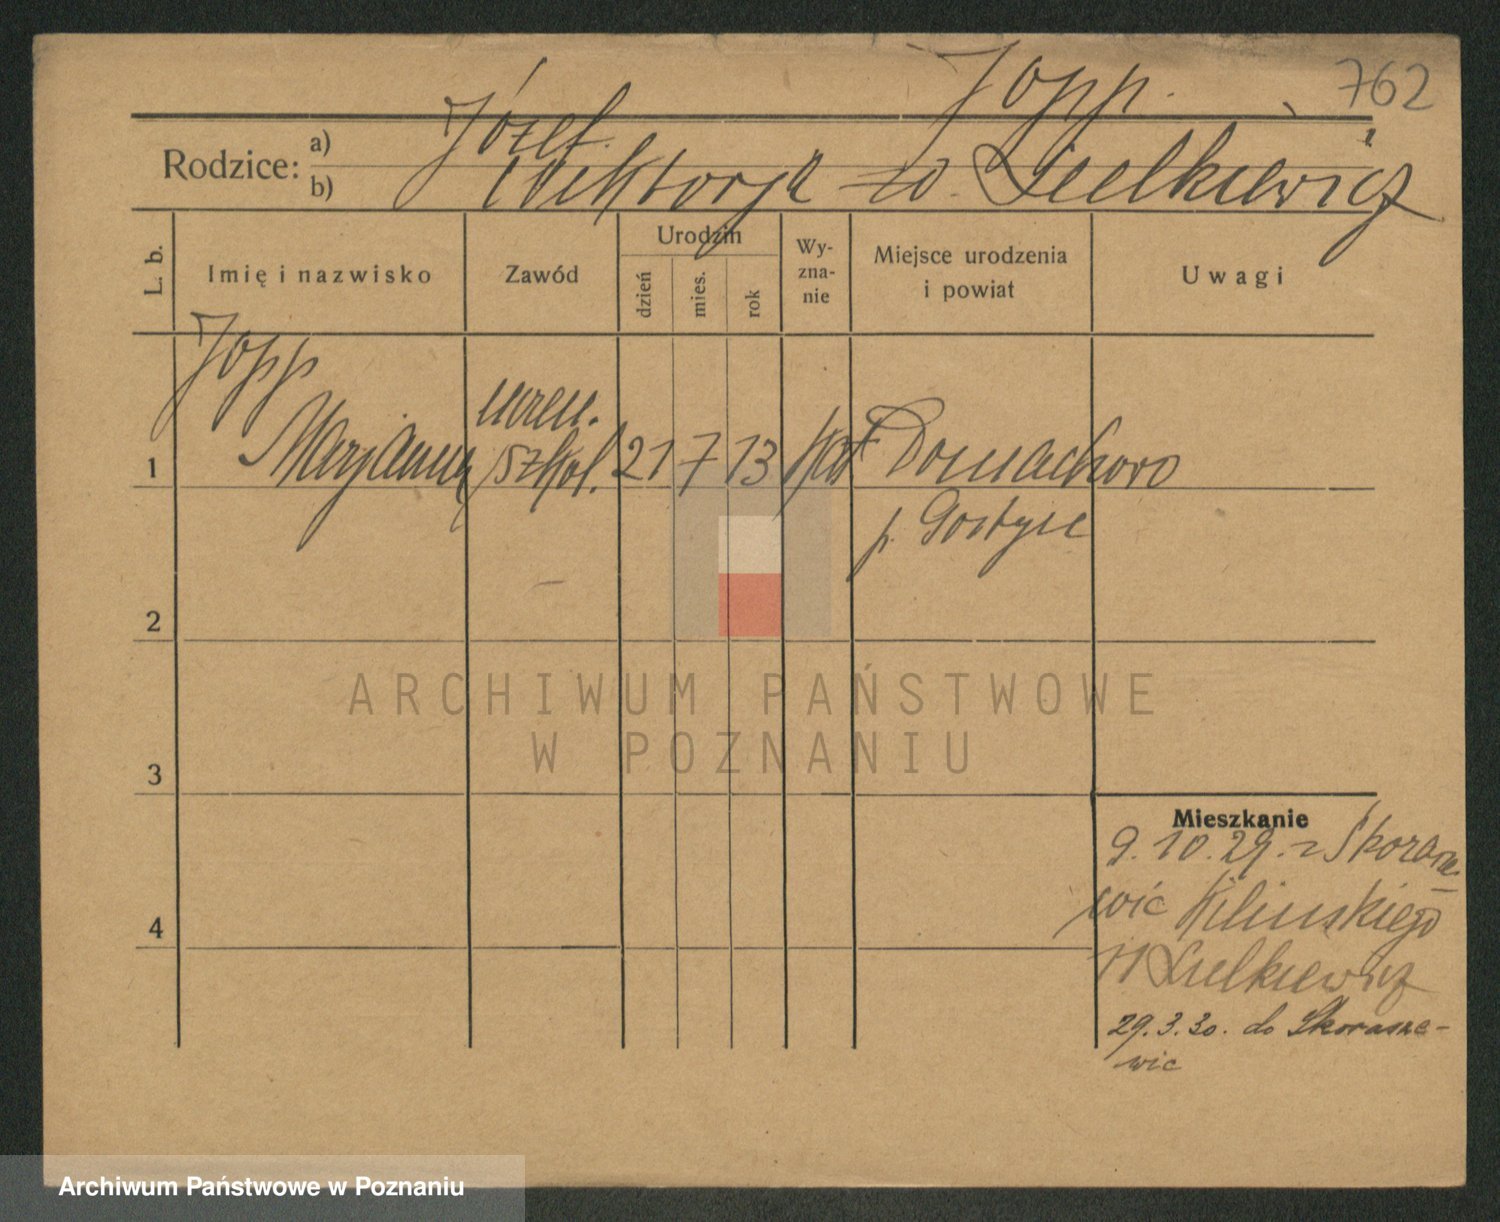 Jopp.
762
Rodzice:
a) Józef
b) Wiktorja zd. Lielkiewicz
L. b.
Imię i nazwisko
Zawód
Urodzin
dzień
mies.
rok
Wy-
zna-
nie
Miejsce urodzenia
i powiat
Uwagi
Jopp
1 Marjanna
uczen.
szkol.
21 7 13
kat
Domachowo
p. Gostyń
2
3
4
Mieszkanie
9.10.29. z Skorasze-
wic Kilinskiego
11 Lielkiewicz
29.3.30. do Skorasze-
wic
ARCHIWUM PAŃSTWOWE
W POZNANIU
Archiwum Państwowe w Poznaniu